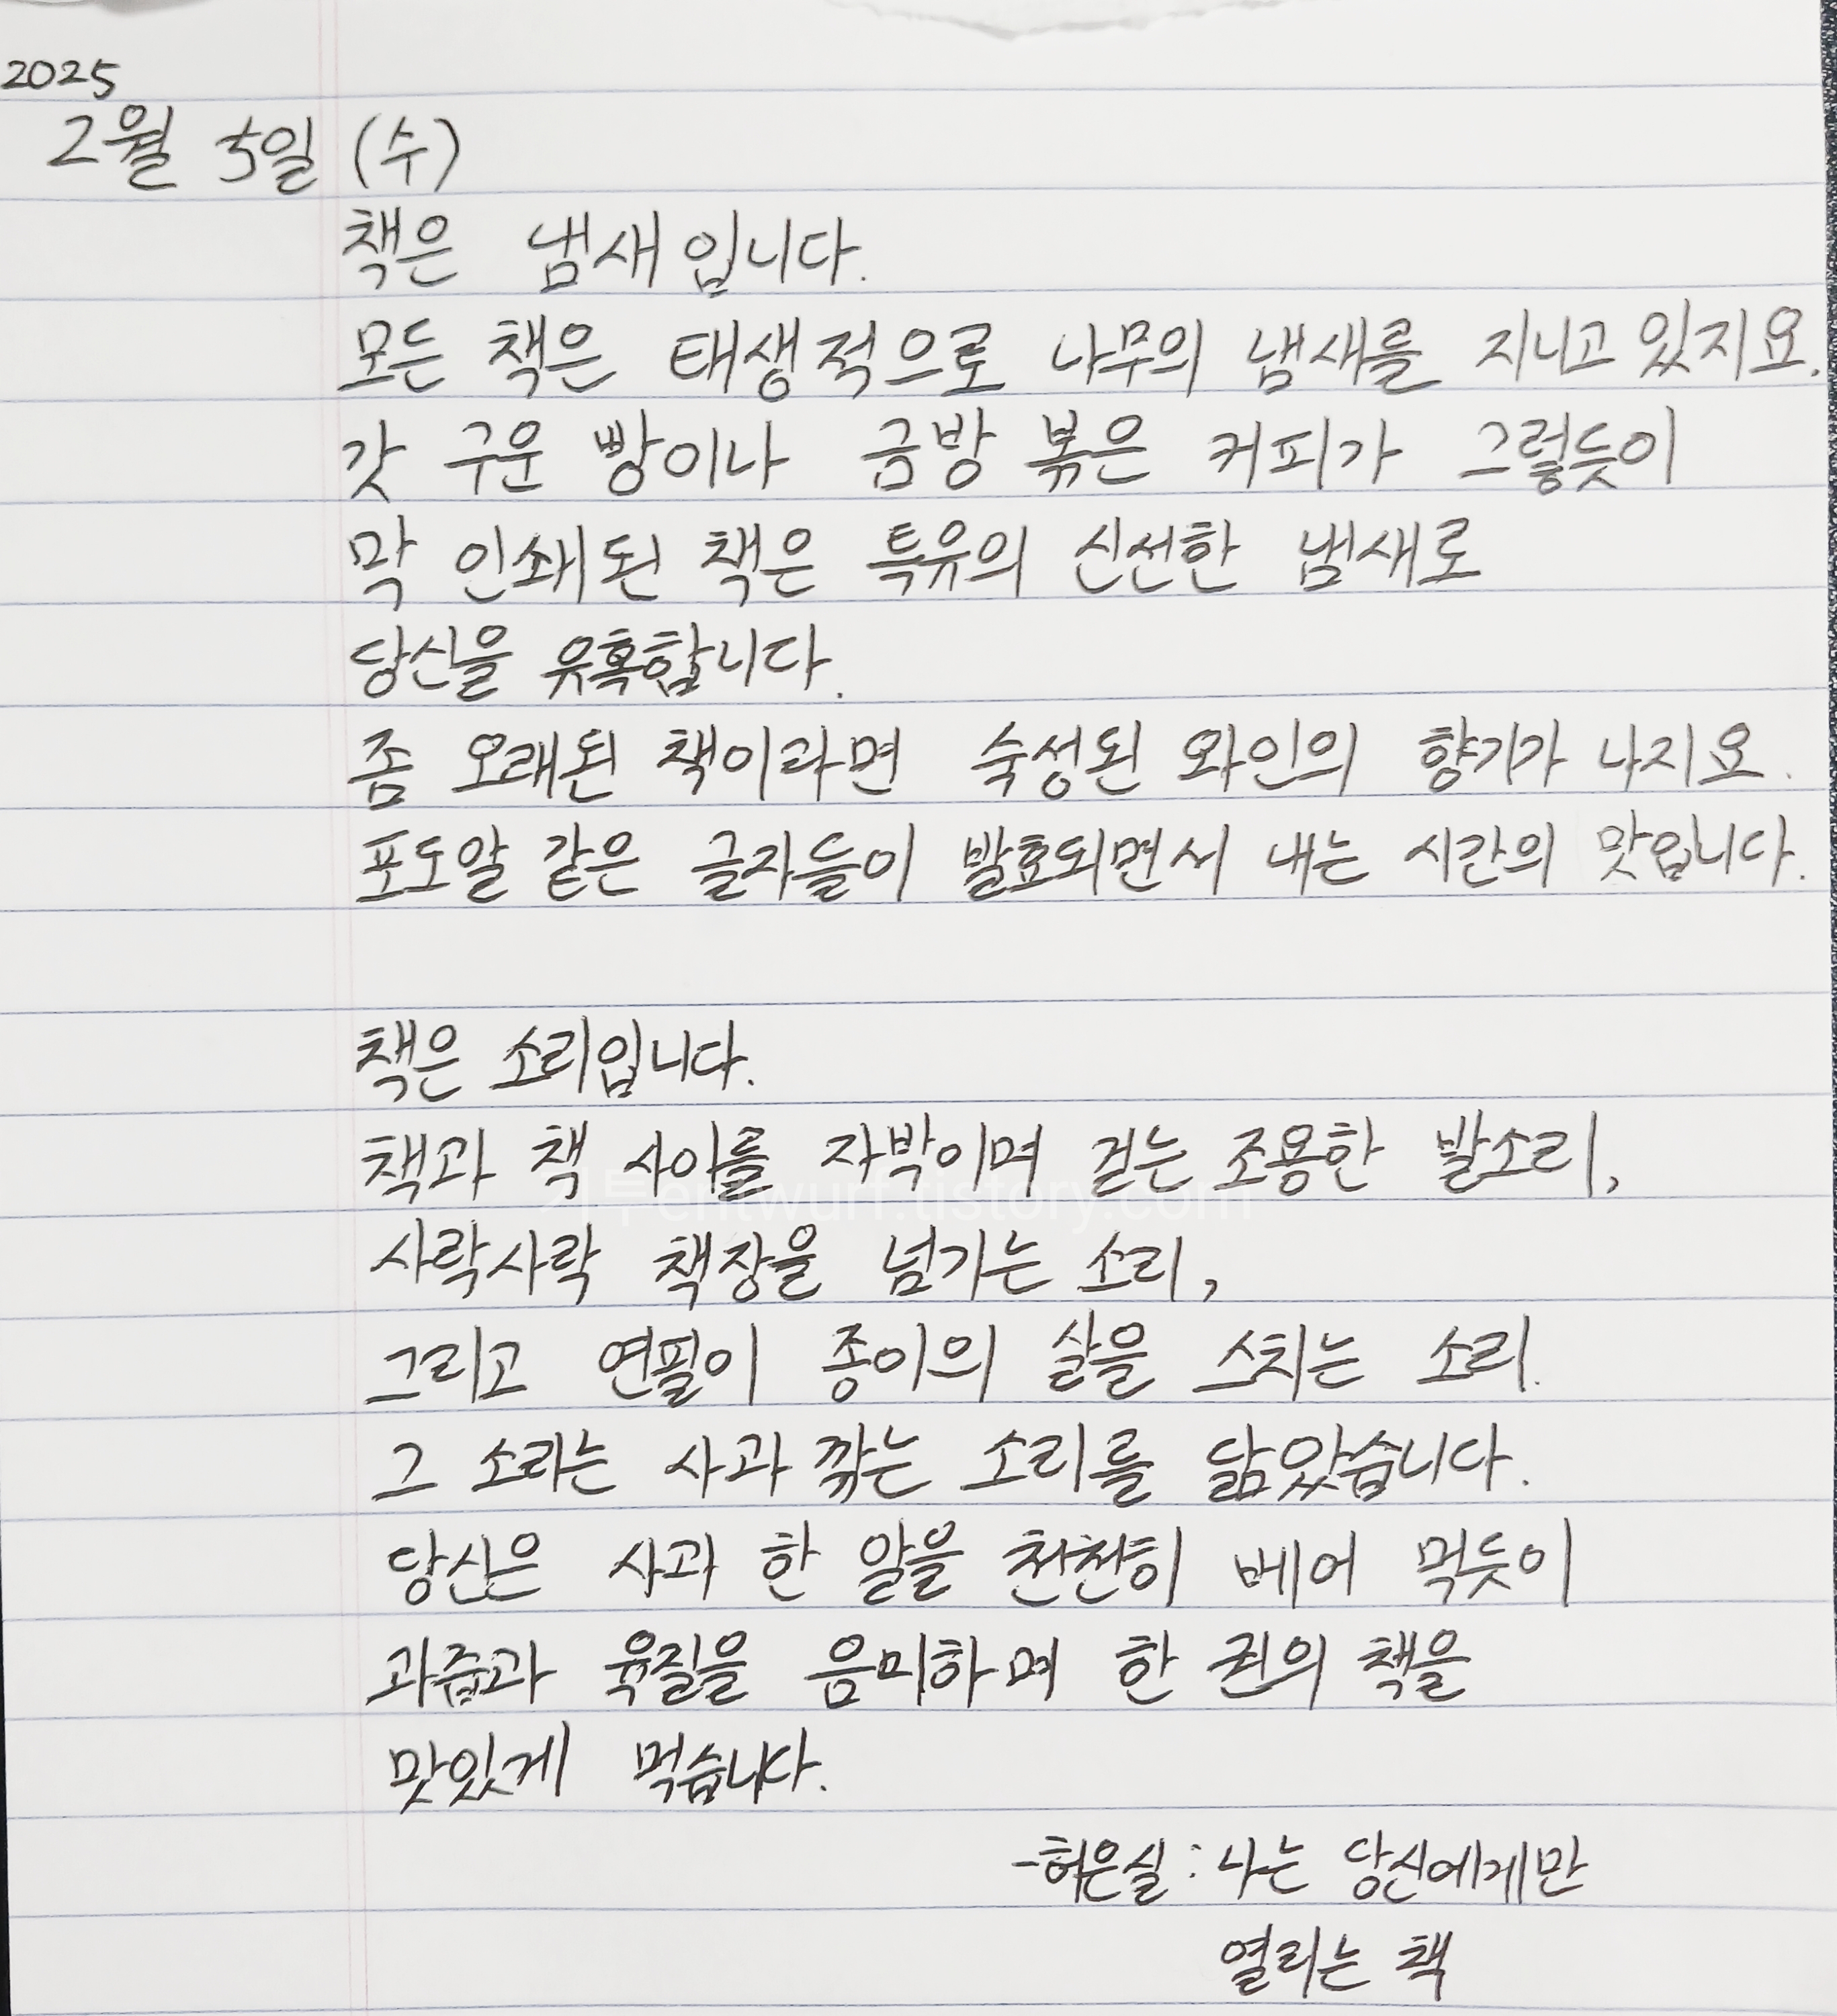 2025
2월 5일 (수)
책은 냄새입니다.
모든 책은 태생적으로 나무의 냄새를 지니고 있지요.
갓 구운 빵이나 금방 볶은 커피가 그렇듯이
막 인쇄된 책은 특유의 신선한 냄새로
당신을 유혹합니다.
좀 오래된 책이라면 숙성된 와인의 향기가 나지요.
포도알 같은 글자들이 발효되면서 내는 시간의 맛입니다.
책은 소리입니다.
책과 책 사이를 자박이며 걷는 조용한 발소리,
entwurf.tistory.com
사락사락 책장을 넘기는 소리,
그리고 연필이 종이의 살을 스치는 소리.
그 소리는 사과 깎는 소리를 닮았습니다.
당신은 사과 한 알을 천천히 베어 먹듯이
과즙과 육질을 음미하며 한 권의 책을
맛있게 먹습니다.
-허은실 : 나는 당신에게만
열리는 책